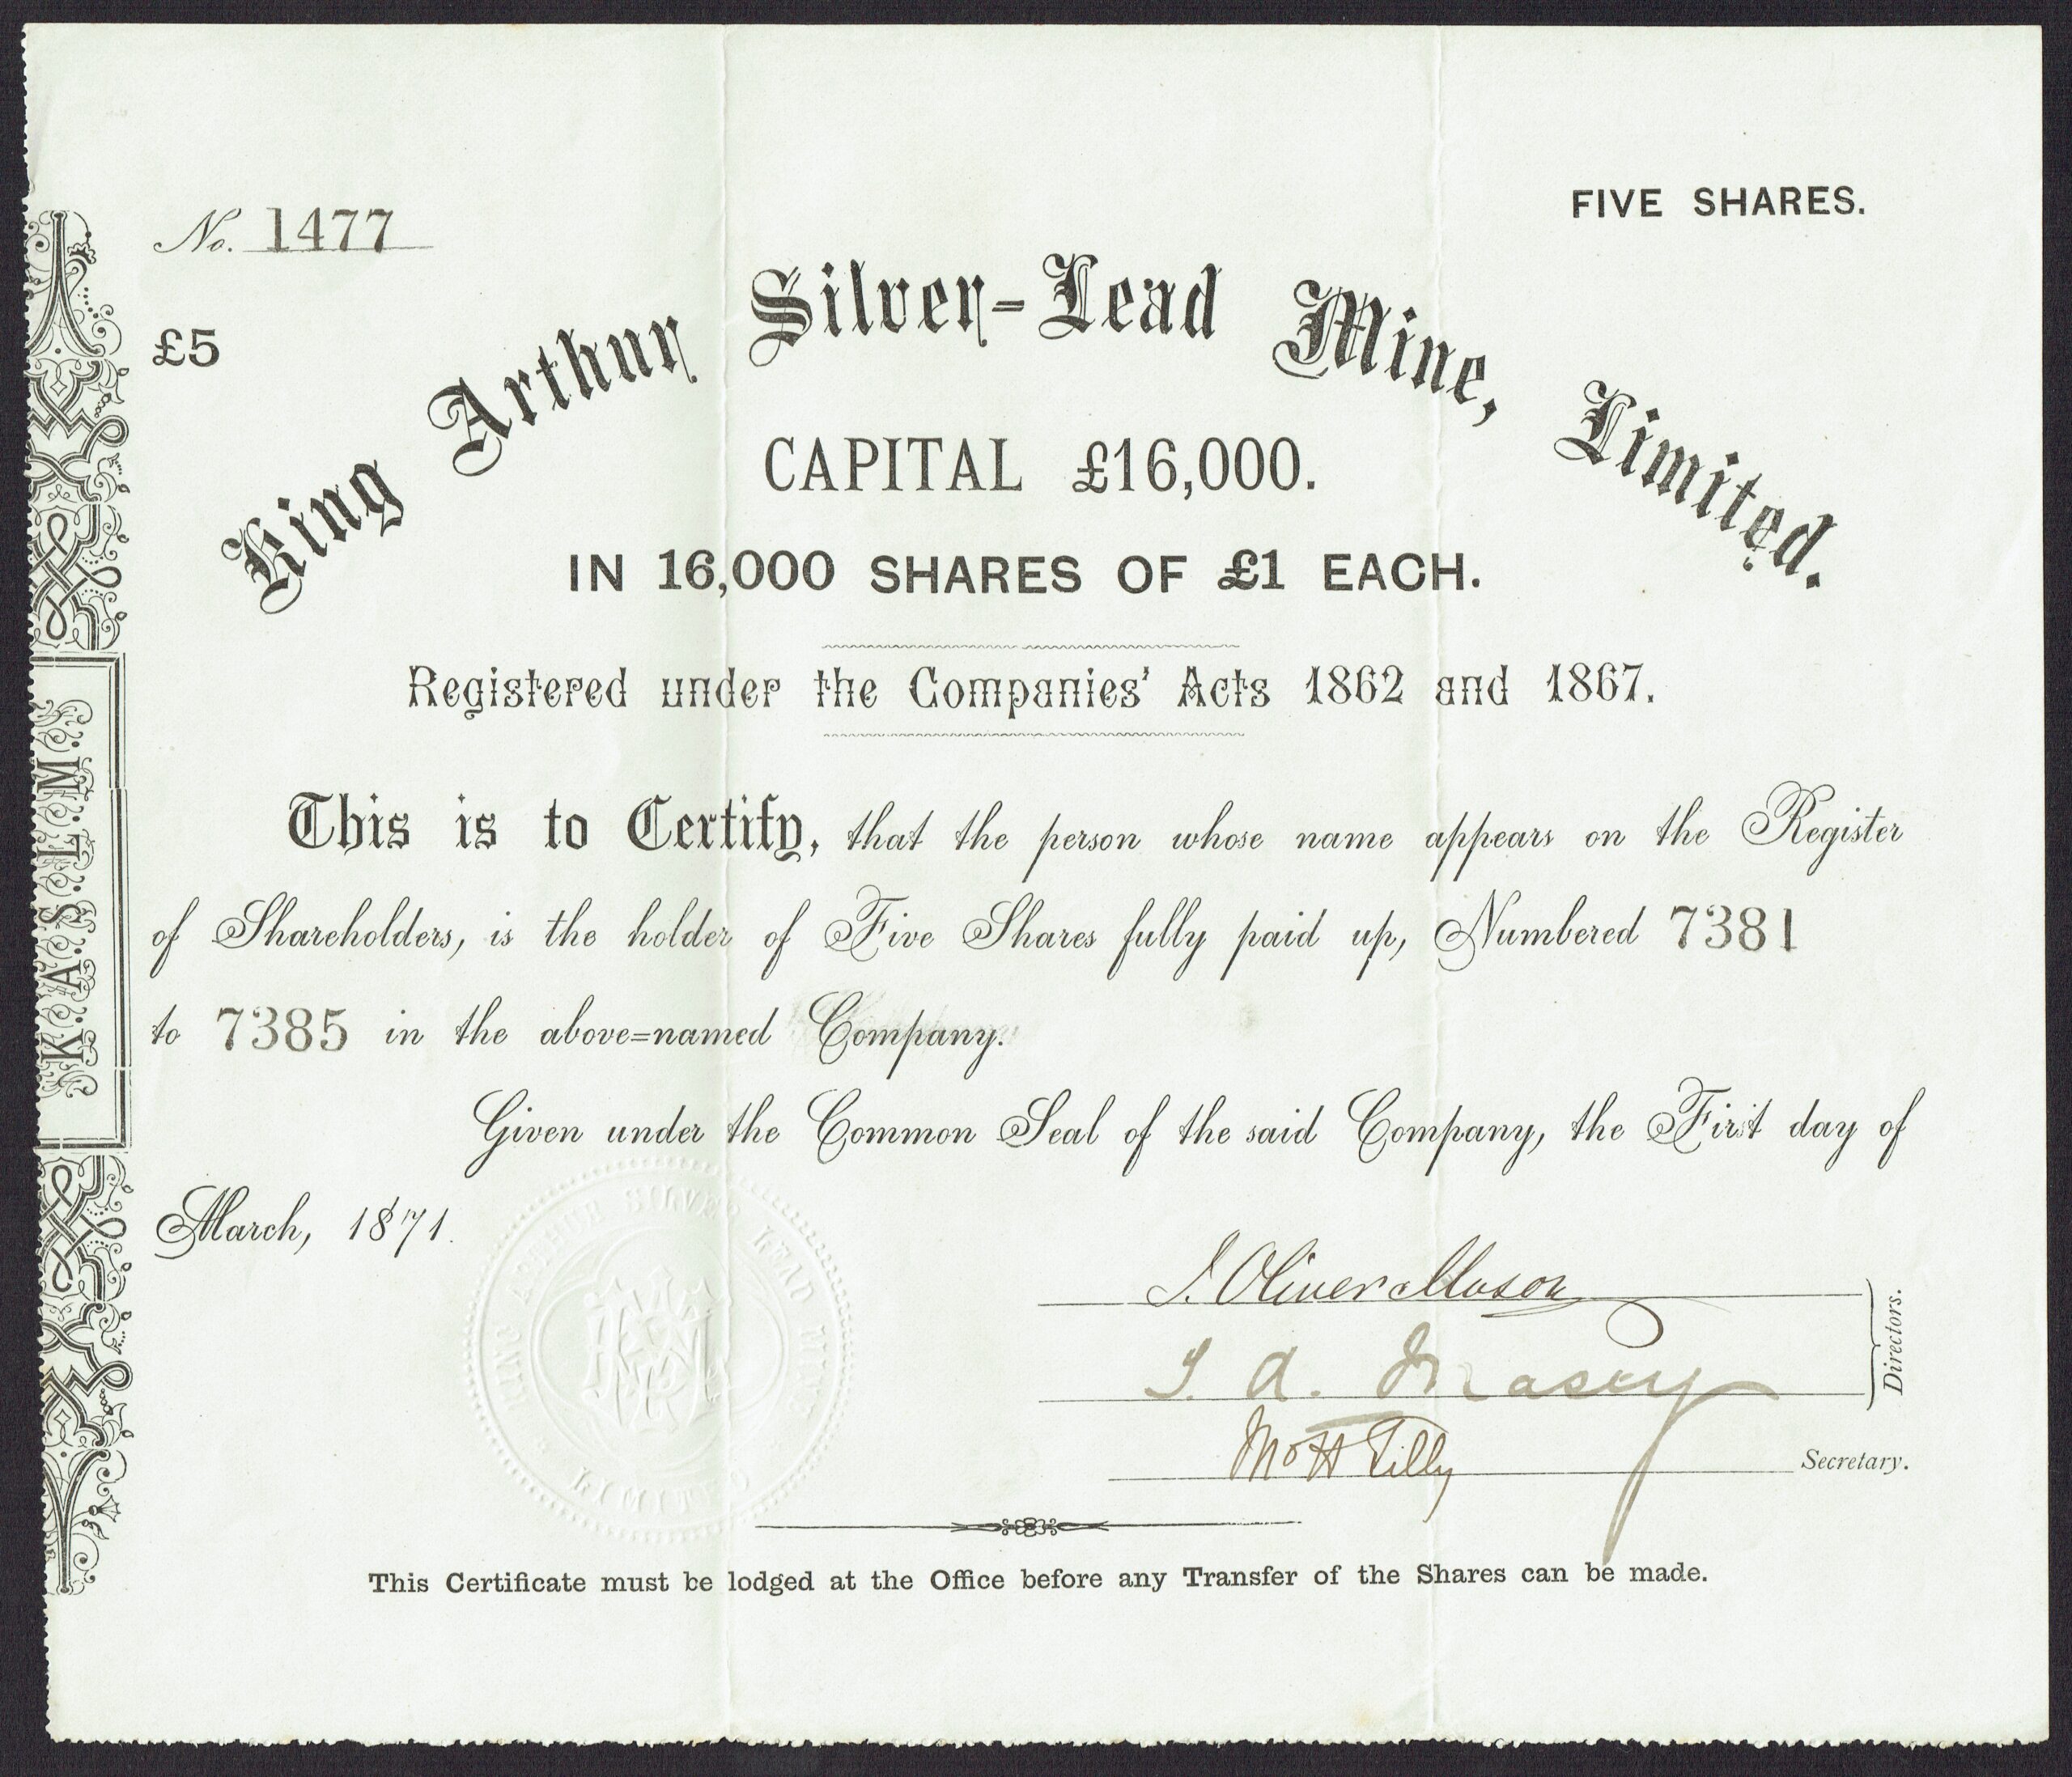 No. 1477
FIVE SHARES.
£5
King Arthur Silver-Lead Mine, Limited.
CAPITAL £16,000.
IN 16,000 SHARES OF £1 EACH.
Registered under the Companies' Acts 1862 and 1867.
This is to Certify, that the person whose name appears on the Register
of Shareholders, is the holder of Five Shares fully paid up, Numbered 7381
to 7385 in the above=named Company.
Given under the Common Seal of the said Company, the First day of
March, 1871.
KING ARTHUR SILVER LEAD MINE
LIMITED
J. Oliver Mason
J. A. Masey
Directors.
Tilly
Secretary.
This Certificate must be lodged at the Office before any Transfer of the Shares can be made.
K.A.S.L.M.